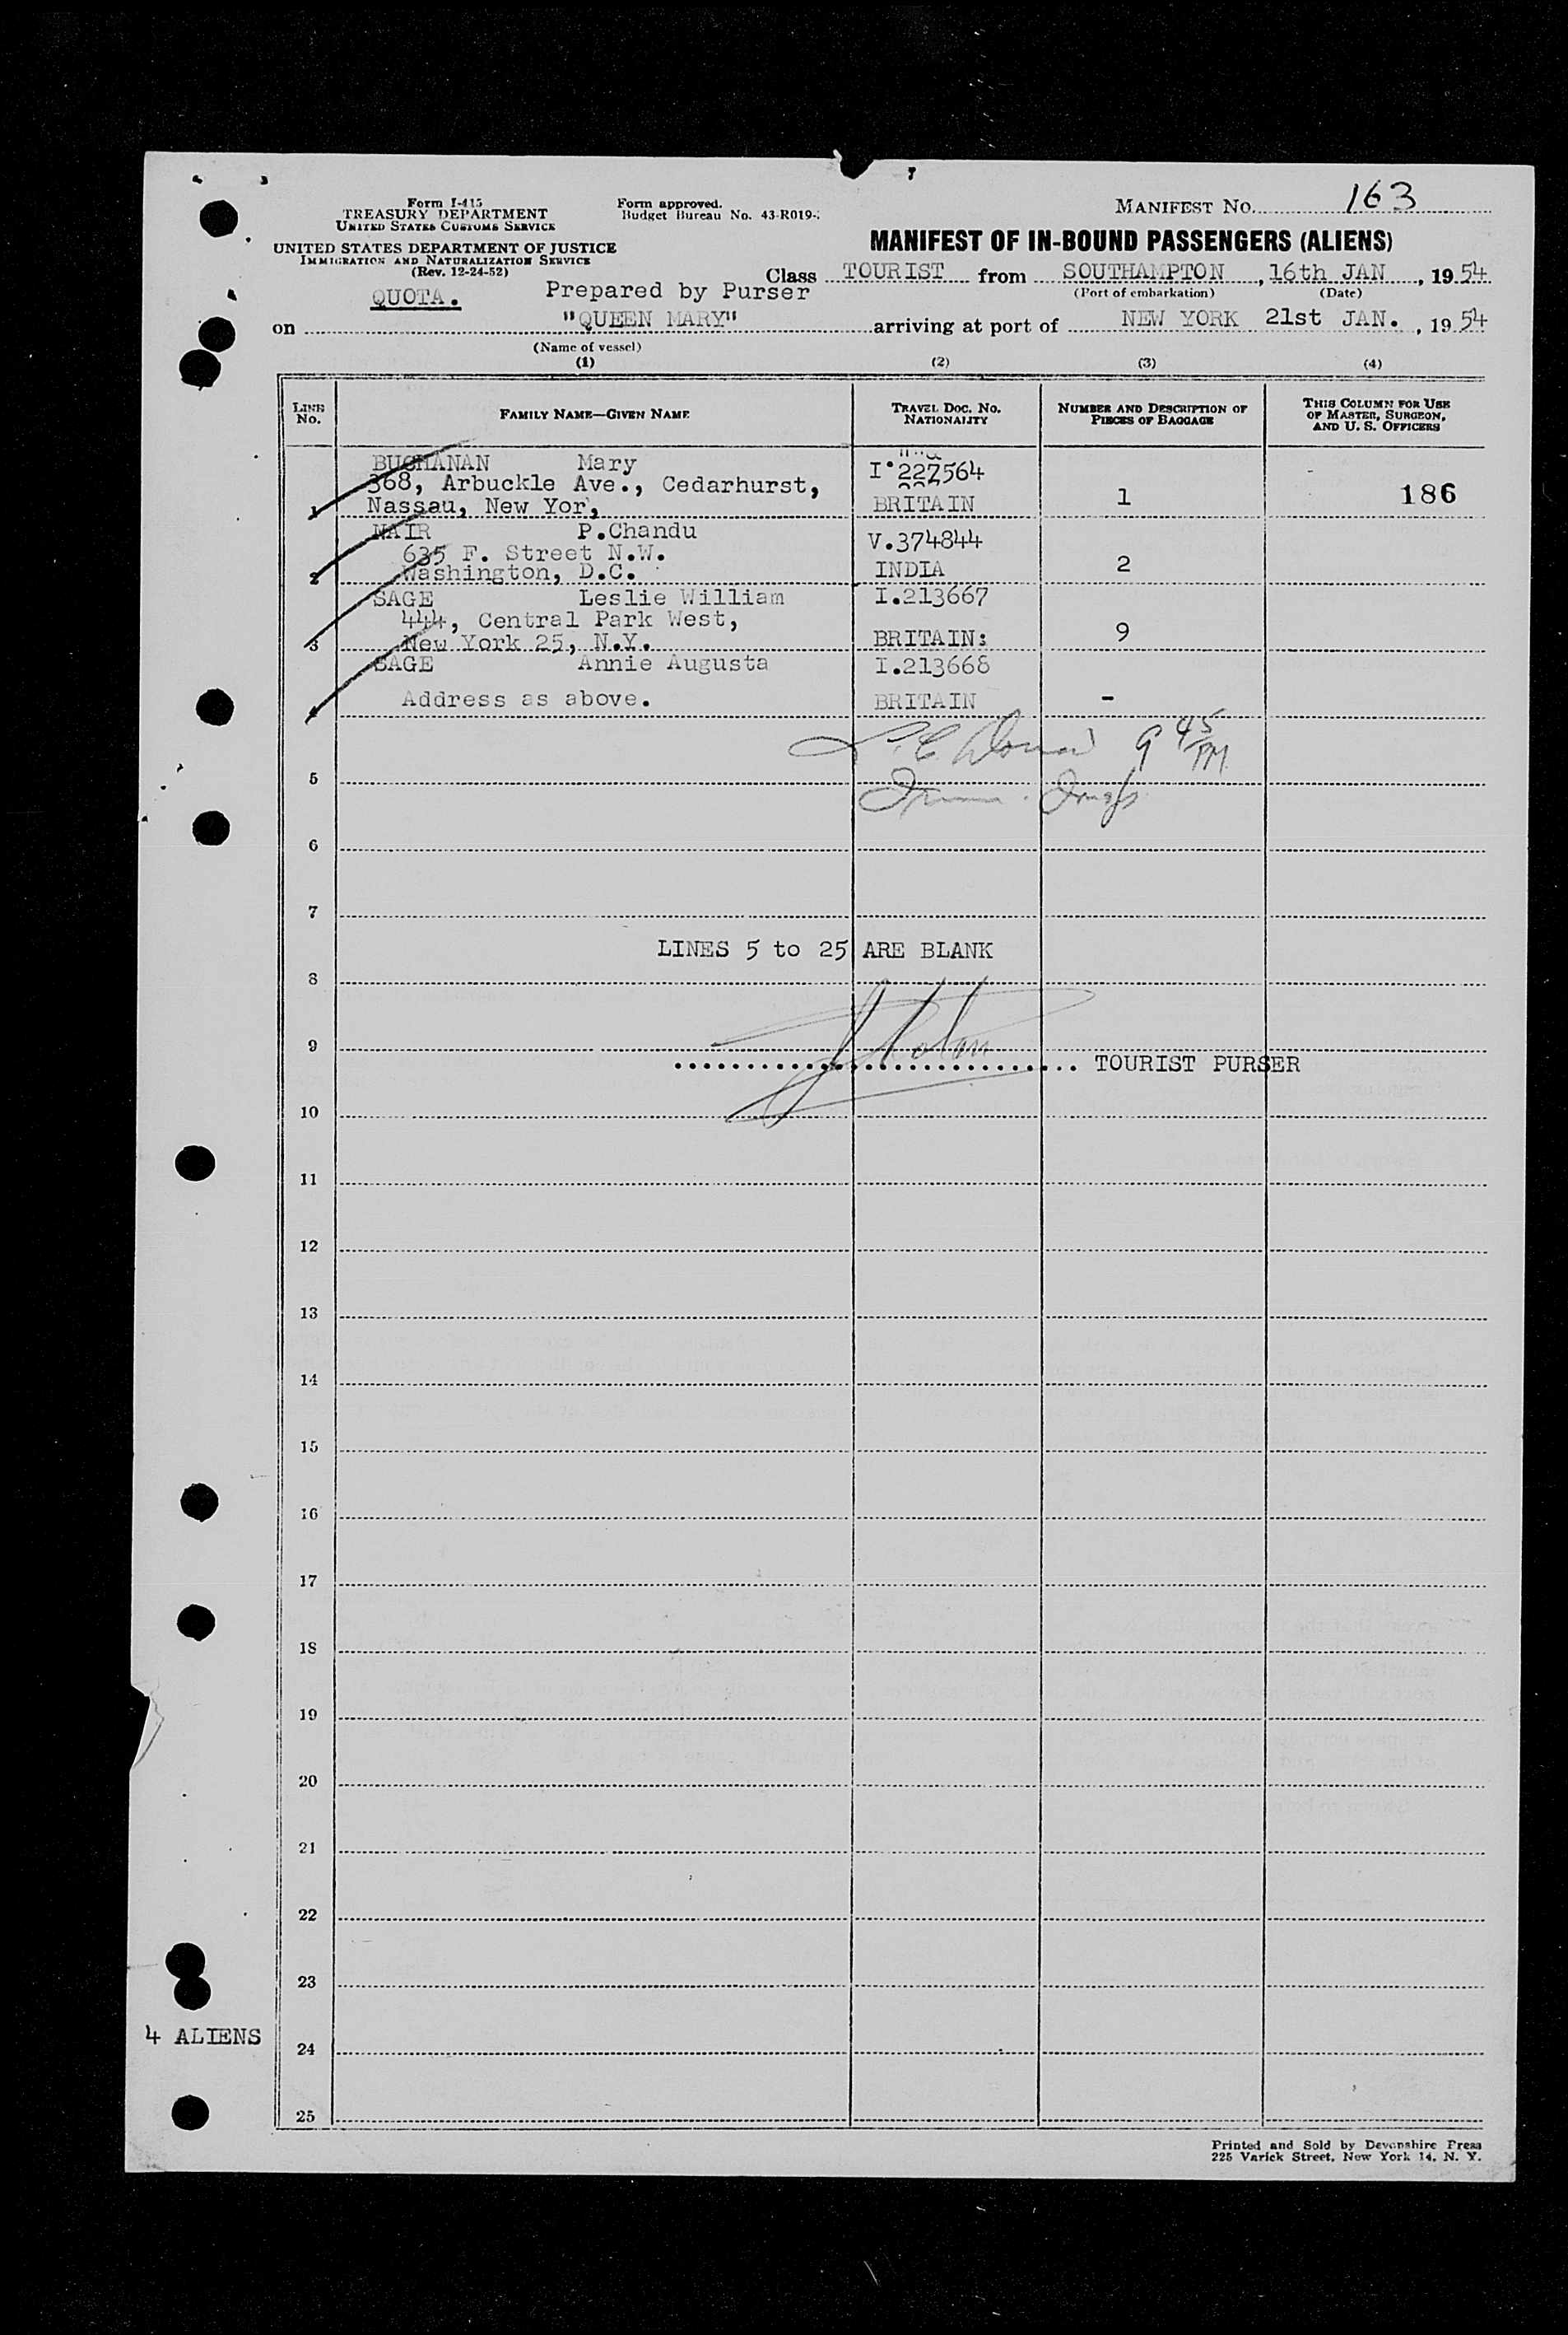 Form I-415
TREASURY DEPARTMENT
UNITED STATES CUSTOMS SERVICE
UNITED STATES DEPARTMENT OF JUSTICE
IMMIGRATION AND NATURALIZATION SERVICE
(Rev. 12-24-52)
Form approved.
Budget Bureau No. 43-R019-
MANIFEST No. 163
MANIFEST OF IN-BOUND PASSENGERS (ALIENS)
Class TOURIST from SOUTHAMPTON, 16th JAN, 1954
(Port of embarkation) (Date)
QUOTA. Prepared by Purser
on "QUEEN MARY" arriving at port of NEW YORK 21st JAN., 1954
(Name of vessel)
(1) (2) (3) (4)
LINE No. FAMILY NAME—GIVEN NAME TRAVEL DOC. NO. NATIONALITY NUMBER AND DESCRIPTION OF PIECES OF BAGGAGE THIS COLUMN FOR USE OF MASTER, SURGEON, AND U. S. OFFICERS
BUCHANAN Mary I 227564
368, Arbuckle Ave., Cedarhurst,
1 Nassau, New Yor, BRITAIN 1 186
NAIR P.Chandu V.374844
635 F. Street N.W.
2 Washington, D.C. INDIA 2
SAGE Leslie William I.213667
444, Central Park West,
3 New York 25, N.Y. BRITAIN: 9
SAGE Annie Augusta I.213668
4 Address as above. BRITAIN -
9 45 PM
5
6
7
LINES 5 to 25 ARE BLANK
8
9
TOURIST PURSER
10
11
12
13
14
15
16
17
18
19
20
21
22
23
4 ALIENS
24
25
Printed and Sold by Devonshire Press
225 Varick Street, New York 14, N. Y.